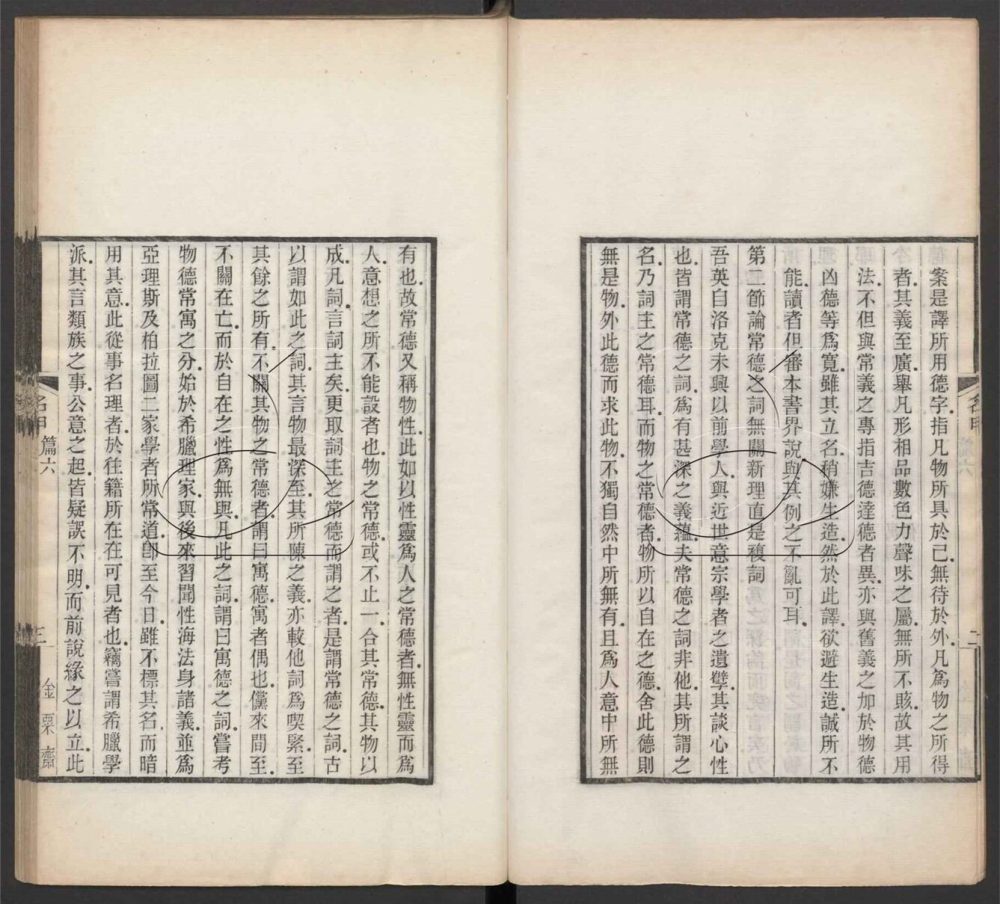 案是譯所用德字．指凡物所具於己．無待於外．凡爲物之所得
者．其義至廣．舉凡形相品數色力聲味之屬．無所不賅．故其用
法．不但與常義之專指吉德達德者異．亦與舊義之加於物德
凶德等爲寬．雖其立名稍嫌生造．然於此譯．欲避生造．誠所不
能．讀者但審本書界說與其例之不亂可耳．
第二節論常德之詞無關新理直是複詞
吾英自洛克未興以前．學人與近世意宗學者之遺孽．其談心性
也．皆謂常德之詞．爲有甚深之義蘊．夫常德之詞非他．其所謂之
名．乃詞主之常德耳．而物之常德者．物所以自在之德．舍此德則
無是物．外此德而求此物．不獨自然中所無有．且爲人意中所無
有也．故常德又稱物性．此如以性靈爲人之常德者．無性靈而爲
人．意想之所不能設者也．物之常德．或不止一．合其常德．其物以
成．凡詞．言詞主矣．更取詞主之常德而謂之者．是謂常德之詞．古
以謂如此之詞．其言物最深至．其所陳之義．亦較他詞爲喫緊．至
其餘之所有．不關其物之常德者．謂曰寓德．寓者偶也．儻來間至．
不關在亡．而於自在之性爲無與．凡此之詞．謂曰寓德之詞．嘗考
物德常寓之分．始於希臘理家．與後來習聞性海法身諸義．並爲
亞理斯及柏拉圖二家學者所常道．卽至今日．雖不標其名．而暗
用其意．此從事名理者．於往籍所在在可見者也．竊嘗謂希臘學
派．其言類族之事．公意之起．皆疑誤不明．而前說緣之以立．此
名甲
篇六
二
三
金粟齋